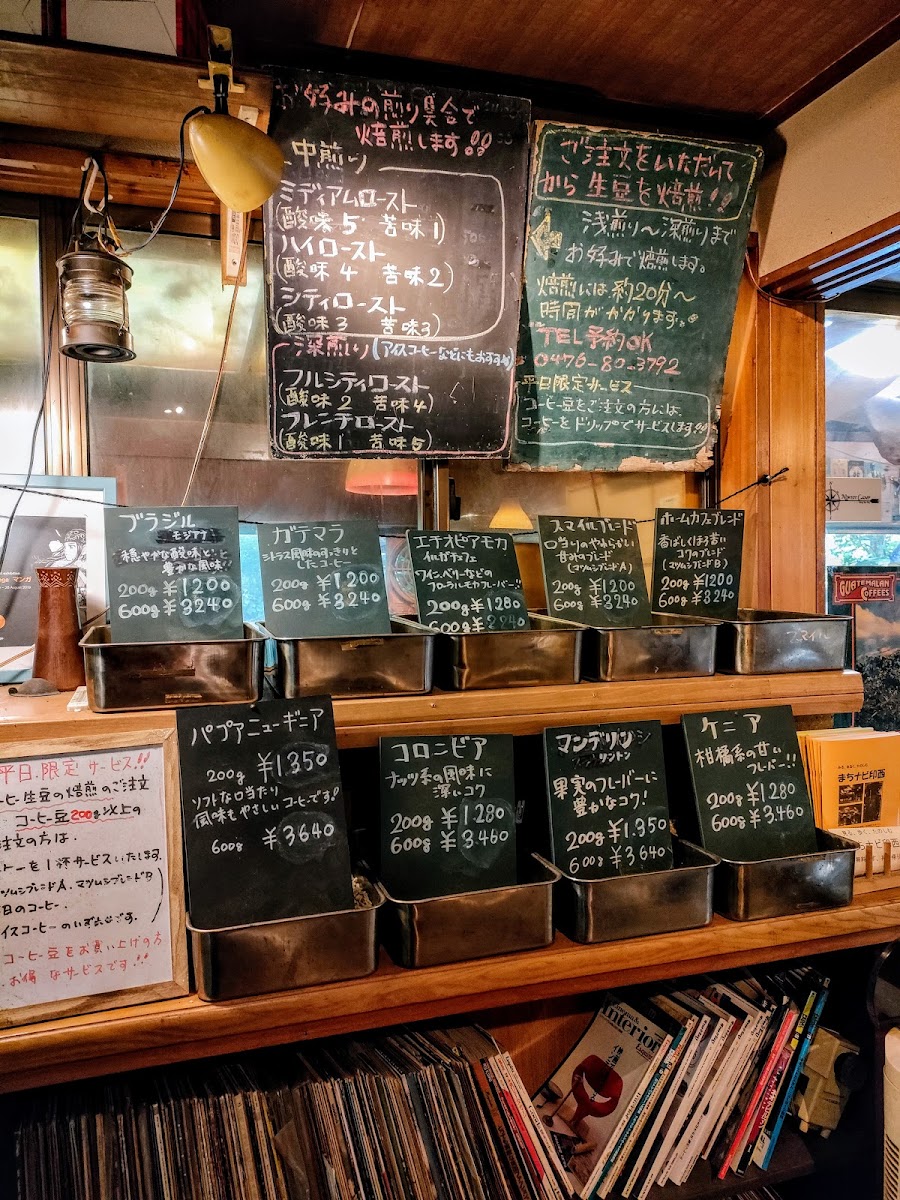 お好みの煎り具合で
焙煎します!!
中煎り
ミディアムロースト
(酸味5 苦味1)
ハイロースト
(酸味4 苦味2)
シティロースト
(酸味3 苦味3)
深煎り(アイスコーヒーなどにもおすすめ)
フルシティロースト
(酸味2 苦味4)
フレンチロースト
(酸味1 苦味5)
ご注文をいただいて
から生豆を焙煎!!
浅煎り〜深煎りまで
お好みで焙煎します。
焙煎には約20分〜
時間がかかります。
TEL予約OK
0476-80-3792
平日限定サービス
コーヒー豆をご注文の方には、
コーヒーをドリップでサービスします!!
ブラジル
モジアナ
穏やかな酸味と
豊かな風味!!
200g ¥1200
600g ¥3240
ガテマラ
シトラス風味のすっきりと
したコーヒー
200g ¥1,200
600g ¥3240
エチオピアモカ
イルガチェフェ
ワイン、ベリーなどの
フローラルモカフレーバー!!
200g ¥1280
600g
スマイルブレンド
口当りのやわらかい
甘みのブレンド
(マツムシブレンドA)
200g ¥1200
600g ¥3240
ホームカフェブレンド
香ばしくほろ苦い
コクのブレンド
(マツムシブレンドB)
200g ¥1200
600g ¥3240
スマイル
GUATEMALAN
COFFEES
パプアニューギニア
200g ¥1350
ソフトな口当たり
風味もやさしいコーヒーです!
600g ¥3640
コロンビア
ナッツ系の風味に
深いコク
200g ¥1280
600g ¥3.460
マンデリン
リントン
果実のフレーバーに
豊かなコク!
200g ¥1.350
600g ¥3640
ケニア
柑橘系の甘い
フレーバー!!
200g ¥1280
600g ¥3.460
まちナビ印西
平日限定サービス!!
ーヒー生豆の焙煎のご注文
コーヒー豆200g以上の
注文の方は、
ヒーを1杯サービスいたします。
マツムシブレンドA、マツムシブレンドB
日のコーヒー、
イスコーヒーのいずれかです。
コーヒー豆をお買い上げの方
お得なサービスです!!
Interior